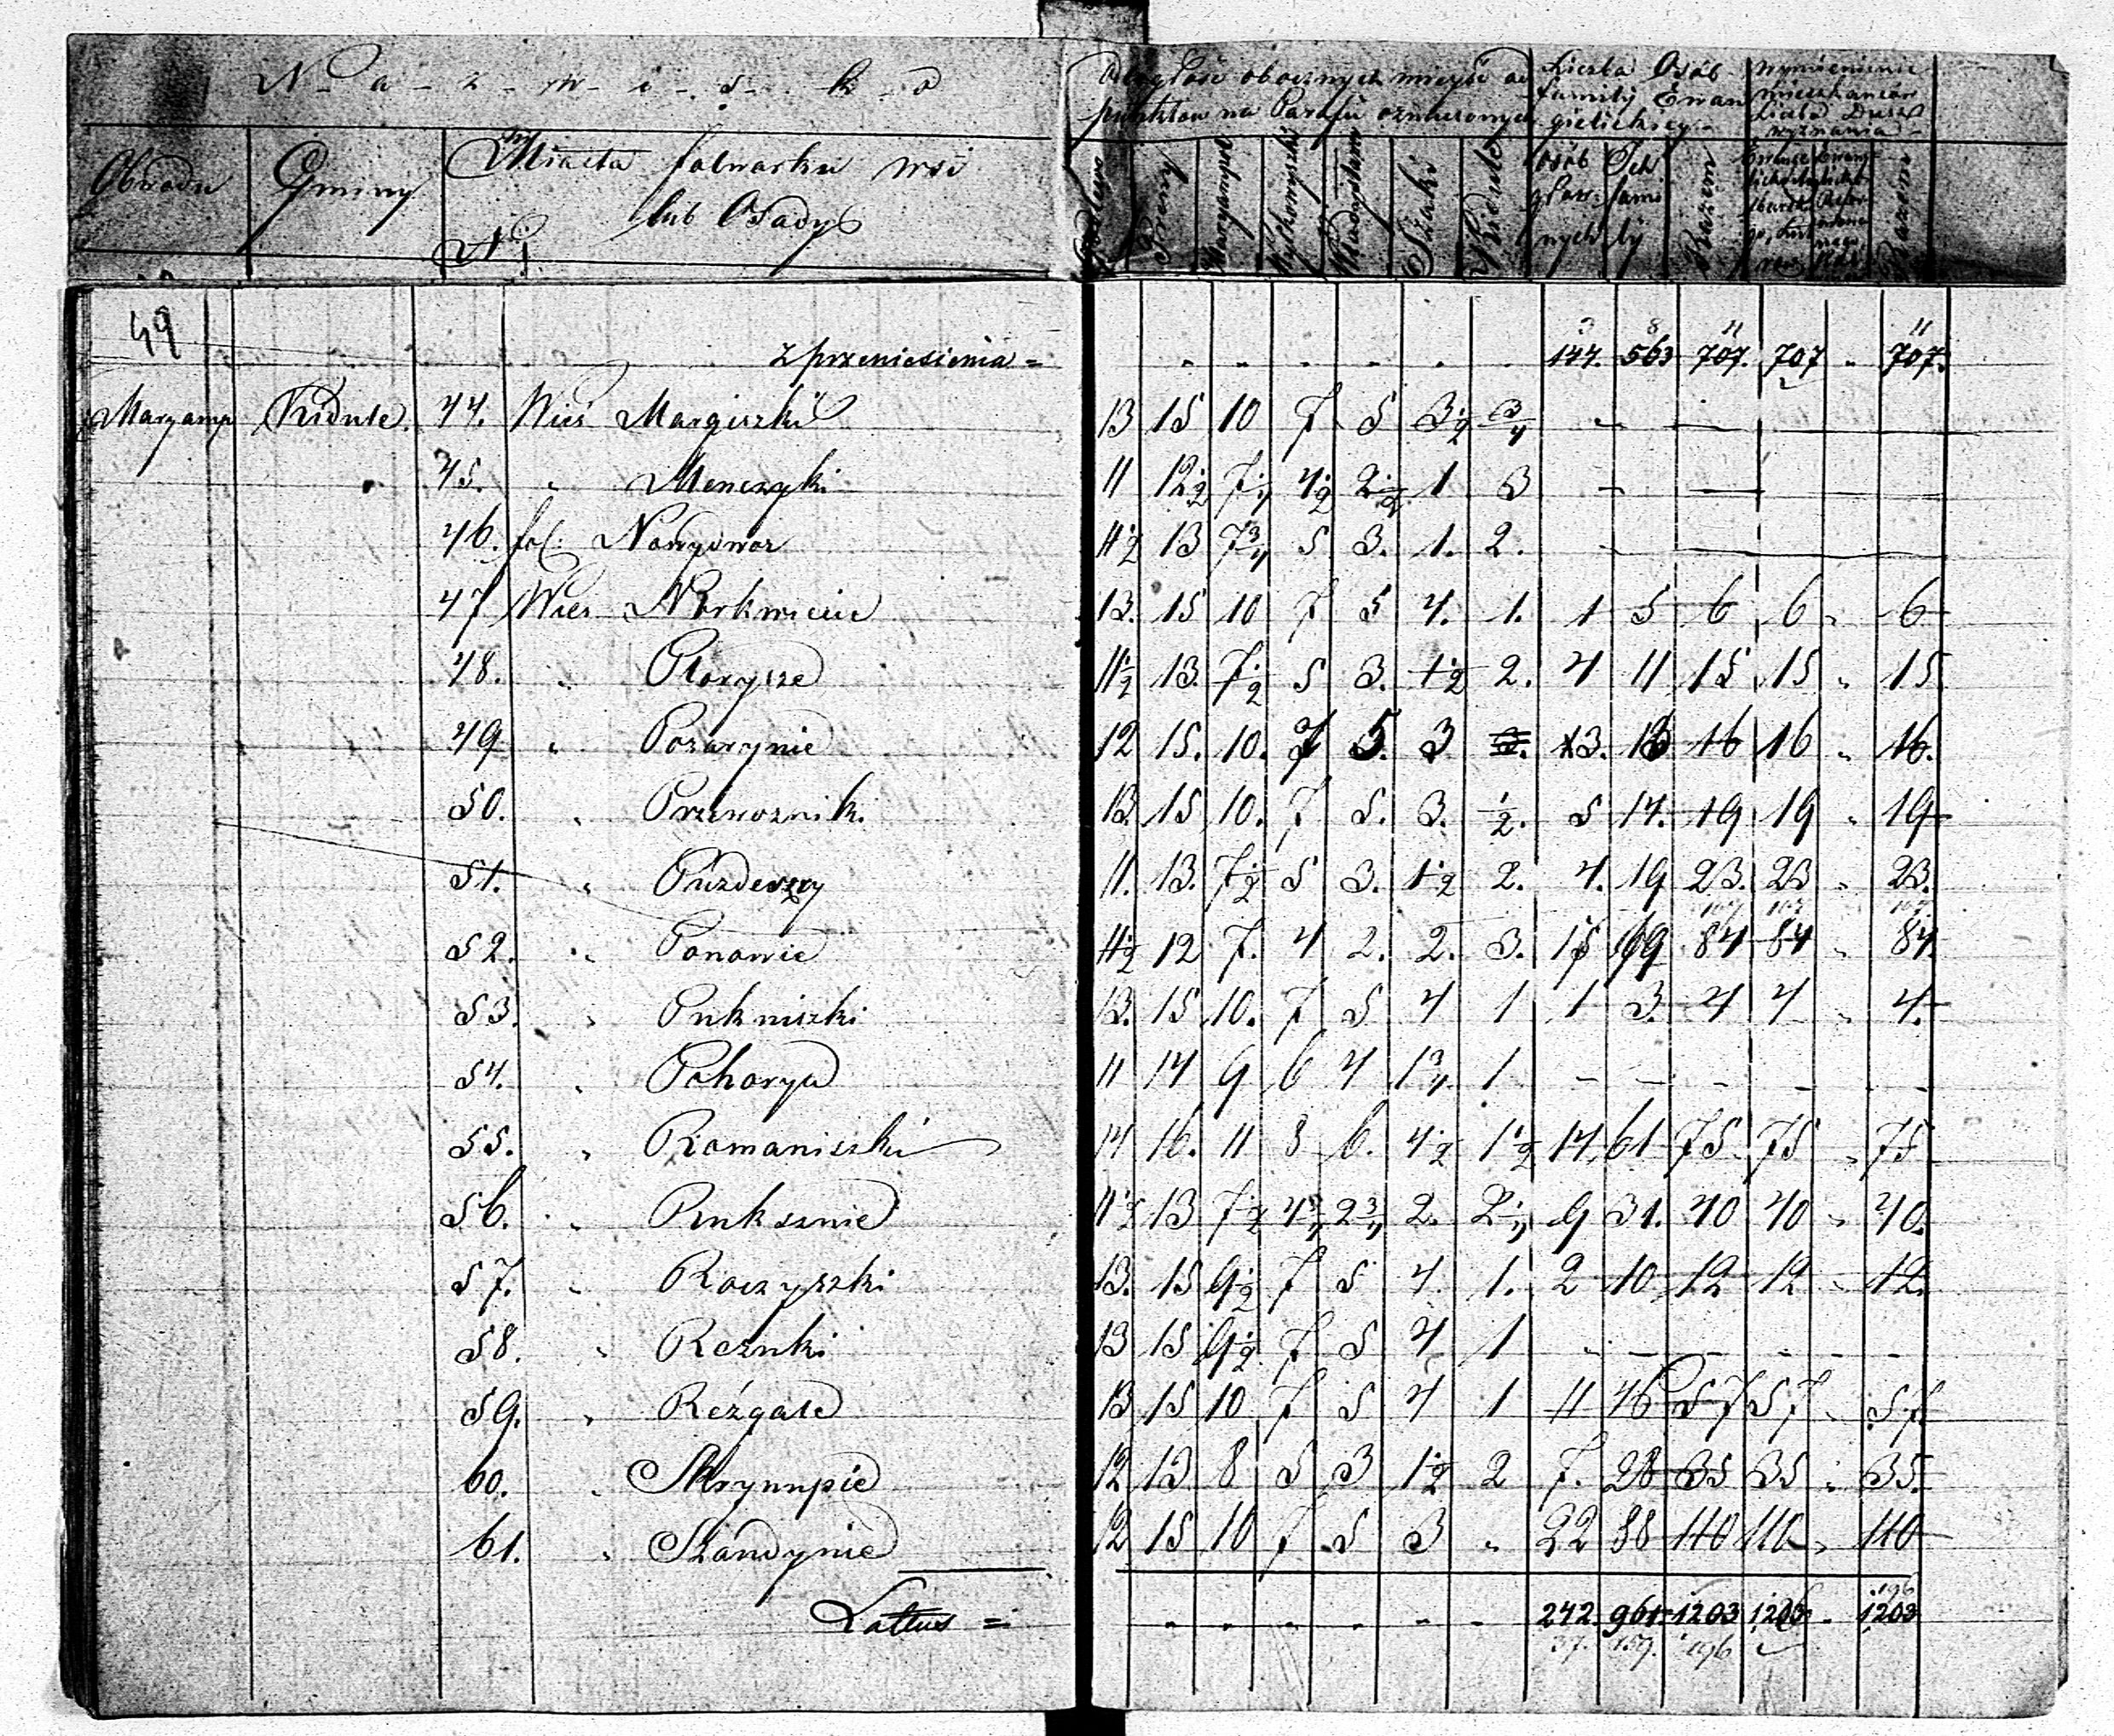 N - a - z - w - i - s - k - o
Obwodu Gminy Miasta folwarku wsi
lub Osady
N
Odległość obocznych mieysc od
punktów na Parafii oznaczonych
Liczba Osób
familij Ewan
gielickiey
wymienienie
mieszkanców
Liczba Dusz
wyznania
osób Ich Razem
głów- fami
nych lij
Razem
49
Z przeniesienia = 144. 563 707. 707 " 707.
Maryamp Kidule. 44. Wieś Margiszki 13 15 10 7 5 3 1/2 3/4 - - -
45. " Menczyki 11 12 1/2 7 1/4 4 1/2 2 1/2 1 3 - - -
46. fol. Nowydwor 11 1/2 13 7 3/4 5 3. 1. 2. -
47 Wieś Norkwiecie 13. 15 10 7 5 4. 1. 1 5 6 6 " 6
48. " Plorysze 11 1/2 13. 7 1/2 5 3. 1 1/2 2. 4 11 15 15 " 15.
49 " Pozarynie 12 15. 10. 7 5. 3 3. 13 16 16 " 16.
50. " Przewozniki 13. 15 10. 7 5. 3. 1/2. 5 14. 19 19 " 19
51. " Puzdeszry 11. 13. 7 1/2 5 3. 1 1/2 2. 4. 19 23. 23 " 23.
52. " Ponowie 11 1/2 12 7. 4 2. 2. 3. 15 69 84 84 " 84.
53. " Pukniszki 13. 15 10. 7 5 4 1 1 3. 4 4 " 4.
54. " Poharyd 11 14 9 6 4 1 3/4 1 - - - - - -
55. " Romaniszki 14 16. 11 8 6. 4 1/2 1 1/2 14 61 75 75 " 75
56. " Ruksznie 11 1/2 13 7 1/2 4 3/4 2 3/4 2. 2 1/4 9 31. 40 40 " 40.
57. " Roczyszki 13. 15 9 1/2 7 5 4 1. 2 10 12 12 " 12.
58. " Rezuki 13 15 9 1/2 7 5 4 1 - - - - - -
59. " Reżgale 13 15 10 7 5 4 1 11 46 57 57 " 57.
60. " Skrynupie 12 13 8 5 3 1 1/2 2 7. 28 35 35 " 35.
61. " Skandynie 12 15 10 7 5 3 " 22 88 110 110 " 110
Lattus = 242 961 1203 1203 " 1203
37. 159. 196